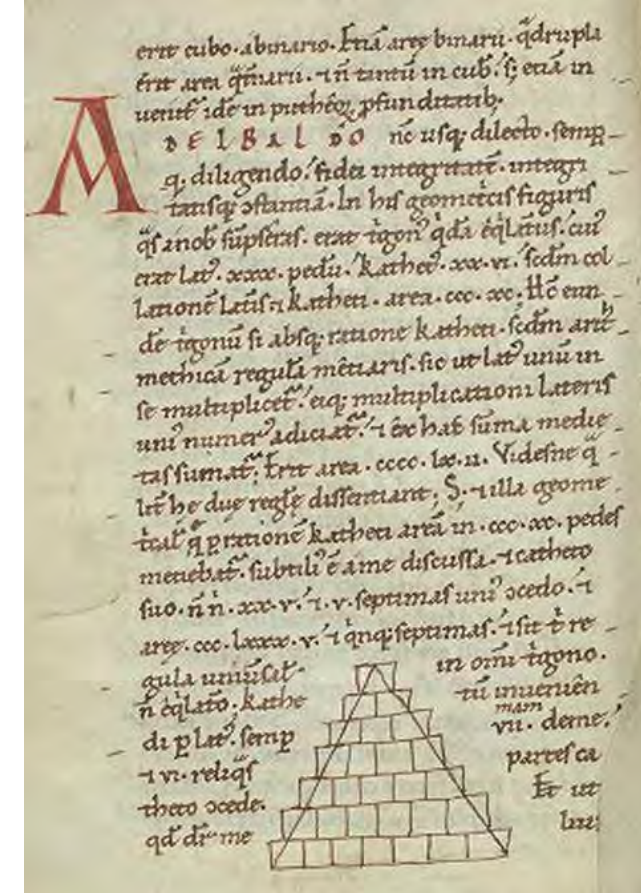 erit cubo. abinario. Etiā aręę binarii. q̄drupla
erit area q̄rnarii. ⁊ n̄ tantū in cub. s; etiā in
ueniet idē in profunditatib;
ADELBALDO nc̄ usq; dilecto. semp
q; diligendo. fidei integritatē. integri
tatisq; ɔstantiā. In his geometcis figuris
q̄s anob sūpseras. erat tgon q̄dā ęqlatus. cui
erat lat. xxx. pedū. kathet. xx. vi. scdm col
lationē latis ⁊ katheti. area. ccc. xc; Hc̄ eun
dē tgonū si absq; ratione katheti. scdm arit
methicā regulā mētiaris. sic ut lat unū in
se multiplicet. eiq; multiplicationi lateris
uni numer adiciat. ⁊ ex hac sūma medie
tas sumat; Erit area. cccc. lx. v. Videsne q
lit he due reglę dissentiant; S. ⁊ illa geome
tcal q̄ p rationē katheti areā in. ccc. xc. pedes
metiebat. subtili ē ame discussa. ⁊ catheto
suo. n̄ n. xx. v. ⁊. v. septimas uni ɔcedo. ⁊
areę. ccc. lxxx. v. ⁊ q̄nq; septimas. ⁊ sit t re
gula uniusal in omī tgono.
n̄ ęqlato. kathe tū inueniēn
di p lat. semp mam vii. deme.
⁊ vi. reliq̄s partes ca
theto ɔcede. Et ut
qđ dr me lius